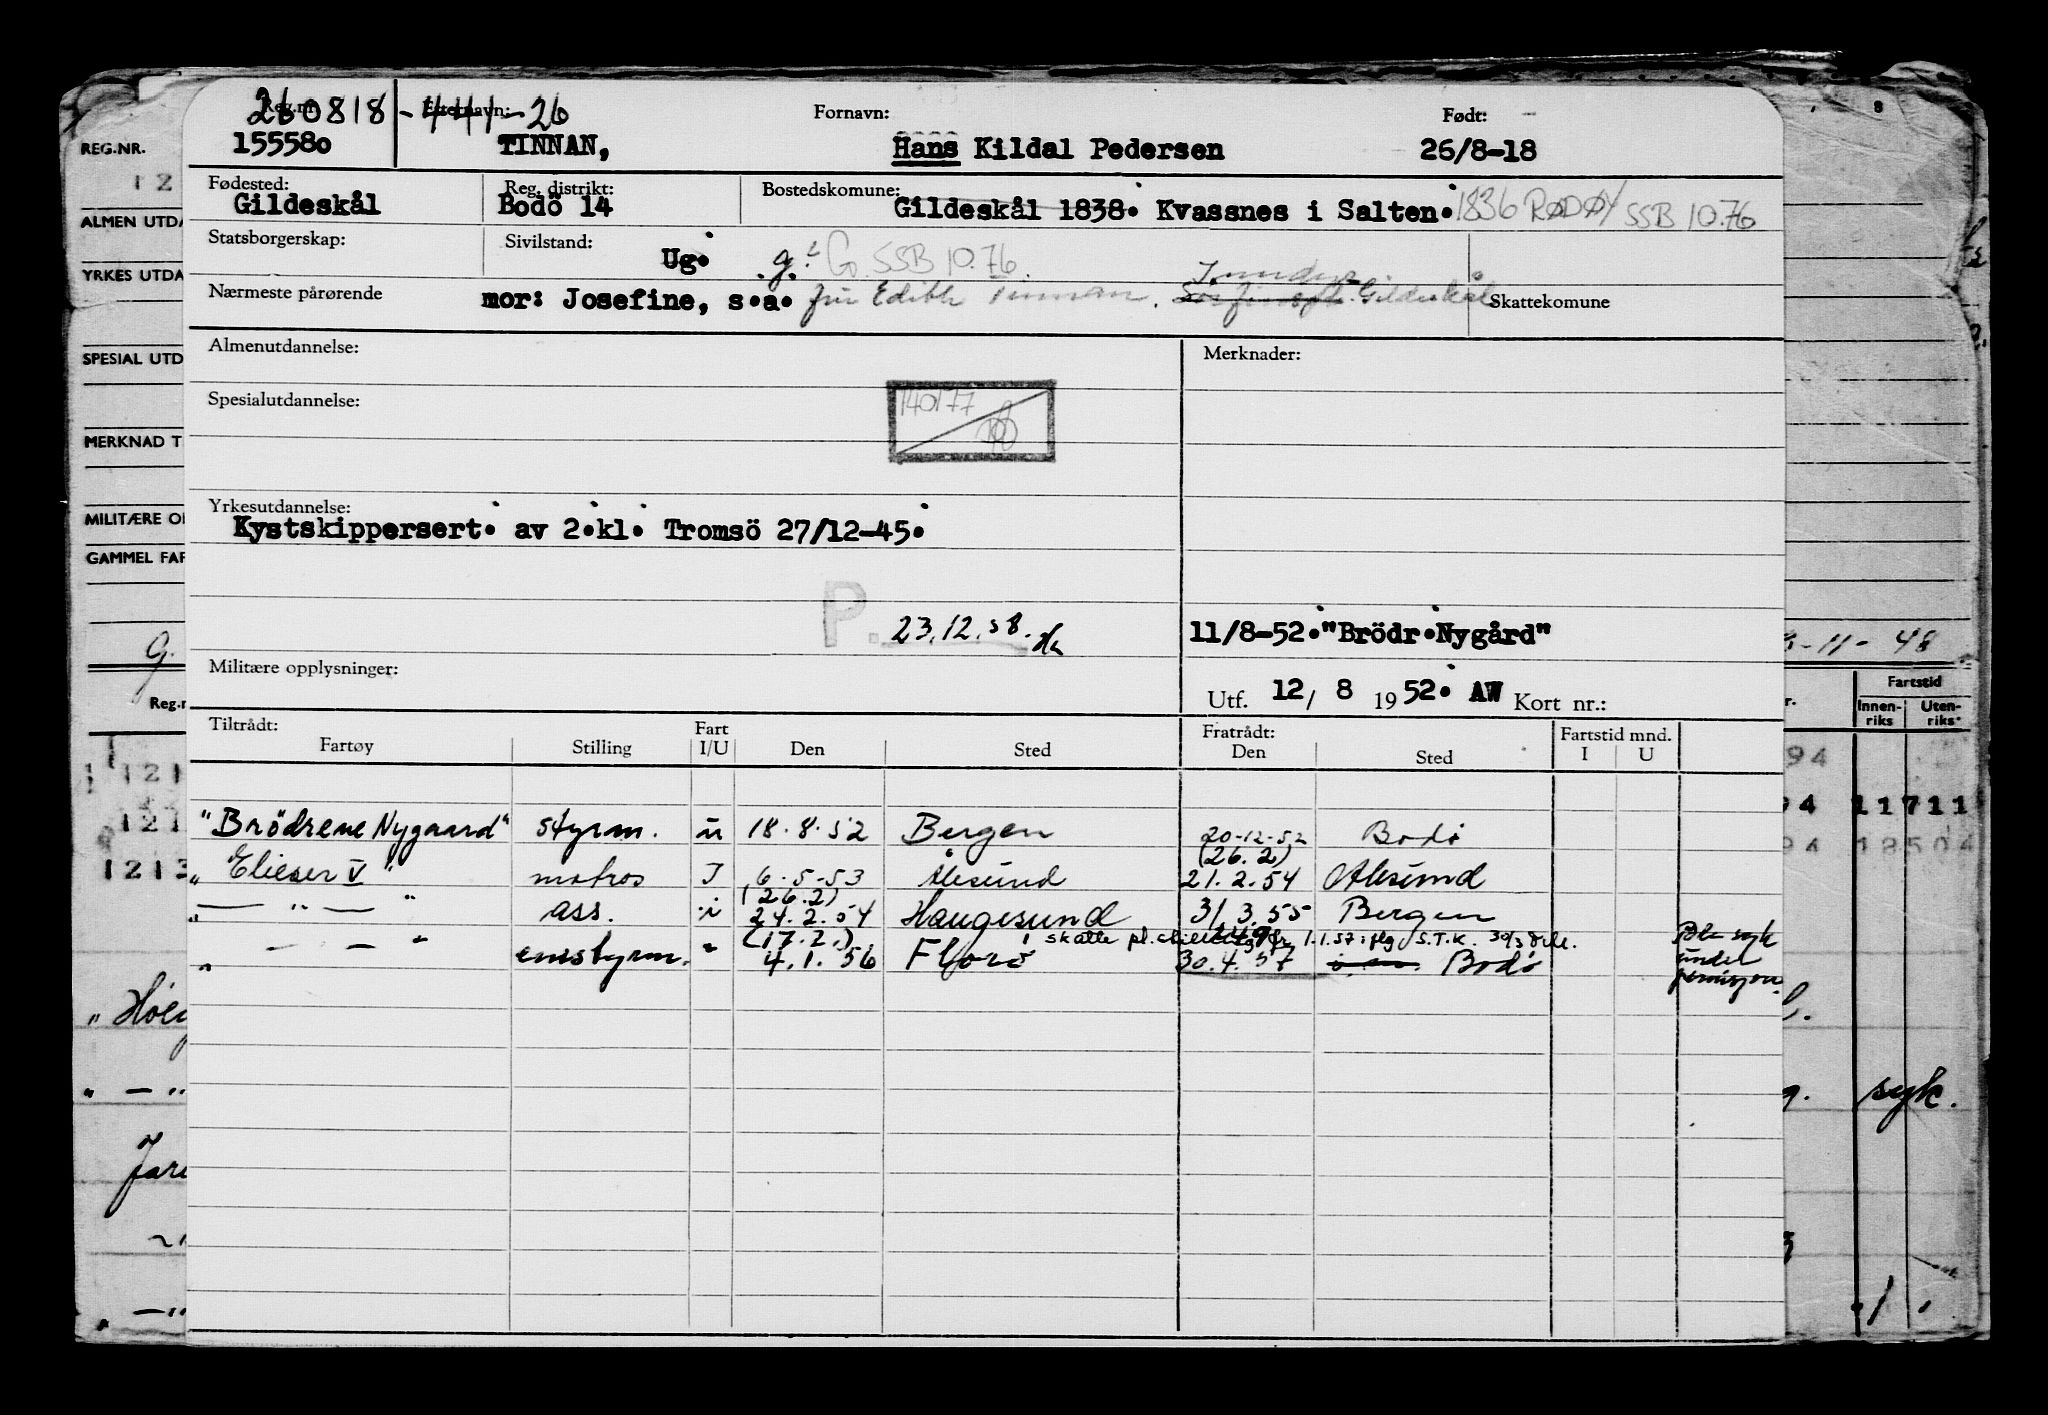 260818-441-26
Reg.nr. Etternavn: Fornavn: Født:
155580 TINNAN, Hans Kildal Pedersen 26/8-18
Fødested: Reg. distrikt: Bostedskomune:
Gildeskål Bodö 14 Gildeskål 1838. Kvassnes i Salten. 1836 RØDØY SSB 10.76
Statsborgerskap: Sivilstand: Ug. g. G. SSB 10.76
Nærmeste pårørende mor: Josefine, s.a. fru Edith Tinnan. Gildeskål Skattekomune
Almenutdannelse: Merknader:
Spesialutdannelse:
140177
Yrkesutdannelse:
Kystskippersert. av 2.kl. Tromsö 27/12-45.
P. 23.12.58. 11/8-52."Brödr.Nygård"
Militære opplysninger:
Utf. 12/ 8 1952. AW Kort nr.:
Tiltrådt: Fart Fratrådt: Fartstid mnd.
Fartøy Stilling I/U Den Sted Den Sted I U
"Brödrene Nygaard" styrm. u 18.8.52 Bergen 20-12-52 Bodö
(26.2)
"Elieser V" matros I 6.5-53 Ålesund 21.2.54 Ålesund
(26.2)
" — " — " ass. i 24.2.54 Haugesund 31.3.55 Bergen
(17.2.) skatte pl. 1.1.57 i flg S.T.K. 30/3
" — — " enestyrm. " 4.1.56 Florö 30.4.57 Bodö
syk
under
permisjon.
REG.NR.
12
ALMEN UTDA
YRKES UTDA
SPESIAL UTD
MERKNAD T
MILITÆRE O
GAMMEL FAR
G. -11-48
Fartstid
Innen-
riks
Uten-
riks
94
94 11711
94 18504
121
121
1213
syk.